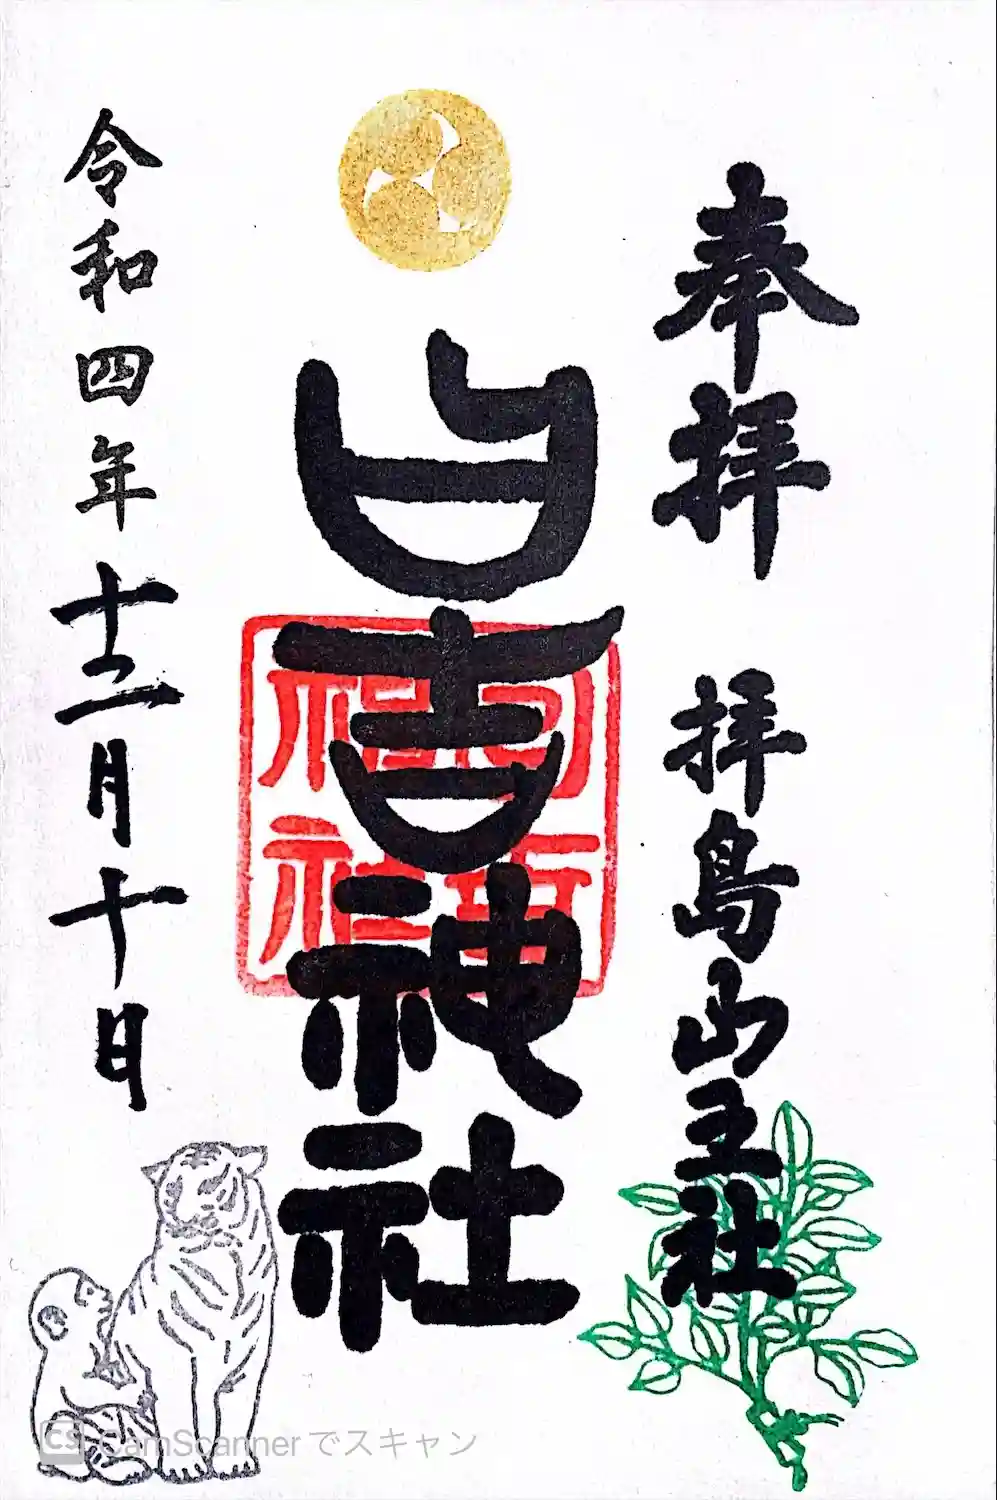 奉拝 拝島山王社
日吉神社
令和四年十二月十日
CS CamScannerでスキャン